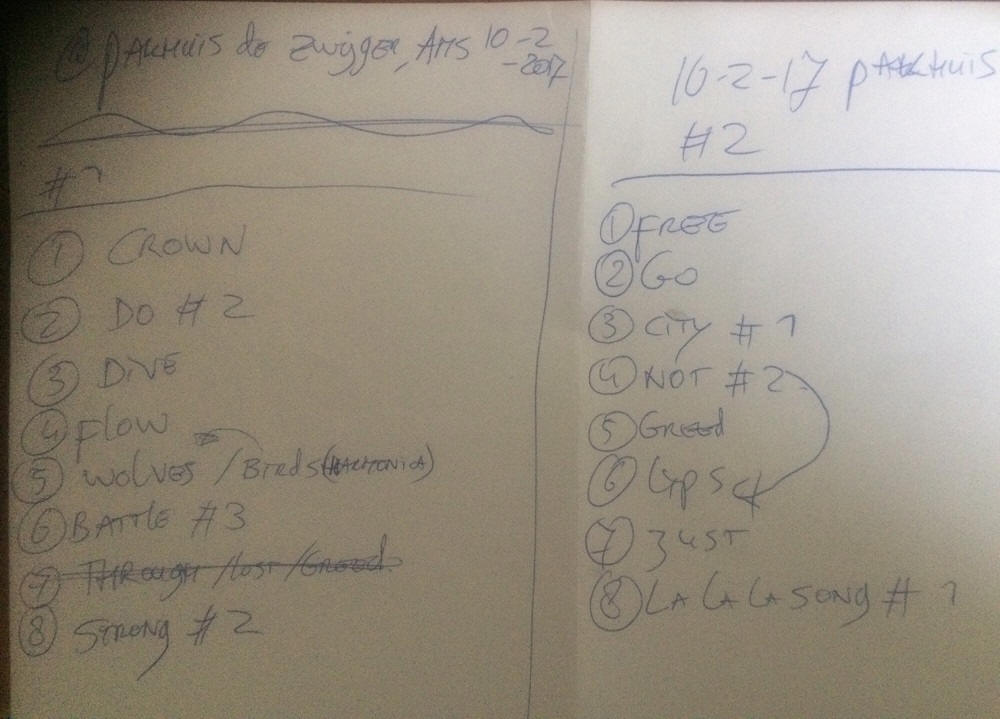 @ Pakhuis de Zwijger, AMS 10-2
-2017
#1
① CROWN
② DO #2
③ DIVE
④ FLOW
⑤ WOLVES / BIRDS (HARMONICA)
⑥ BATTLE #3
⑦ THROUGH / LOST / GREED
⑧ STRONG #2
10-2-17 PAKHUIS
#2
① FREE
② GO
③ CITY #1
④ NOT #2
⑤ GREED
⑥ LIPS
⑦ JUST
⑧ LA LA LA SONG #1